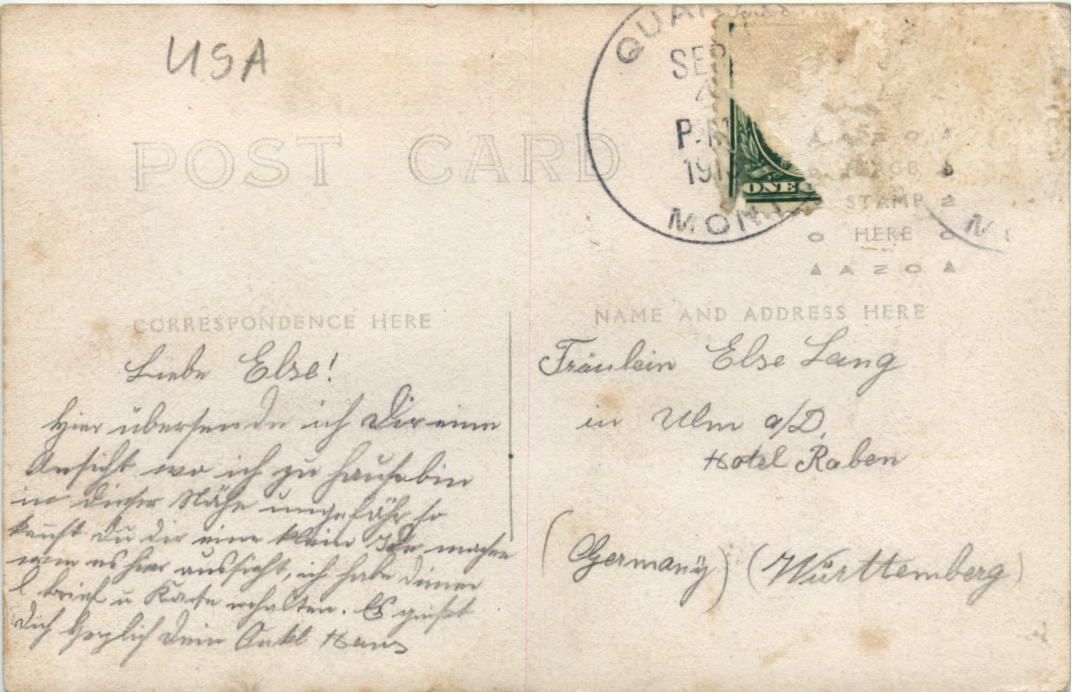 USA
QUA
SEP
4
P.M
191
MONT
ONE
POST CARD
AZO
PLACE
STAMP
HERE
AZO
CORRESPONDENCE HERE
NAME AND ADDRESS HERE
Liebe Else!
Hier übersende ich Dir eine
Ansicht wo ich zu Hause bin
in dieser Nähe ungefähr so
kannst Du dir eine kleine Idee machen
wie es hier aussieht, ich habe deinen
l brief u Karte erhalten. Es grüßt
Dich herzlich Dein Onkl Hans
Fräulein Else Lang
in Ulm a/D.
Hotel Raben
(Germany) (Württemberg)